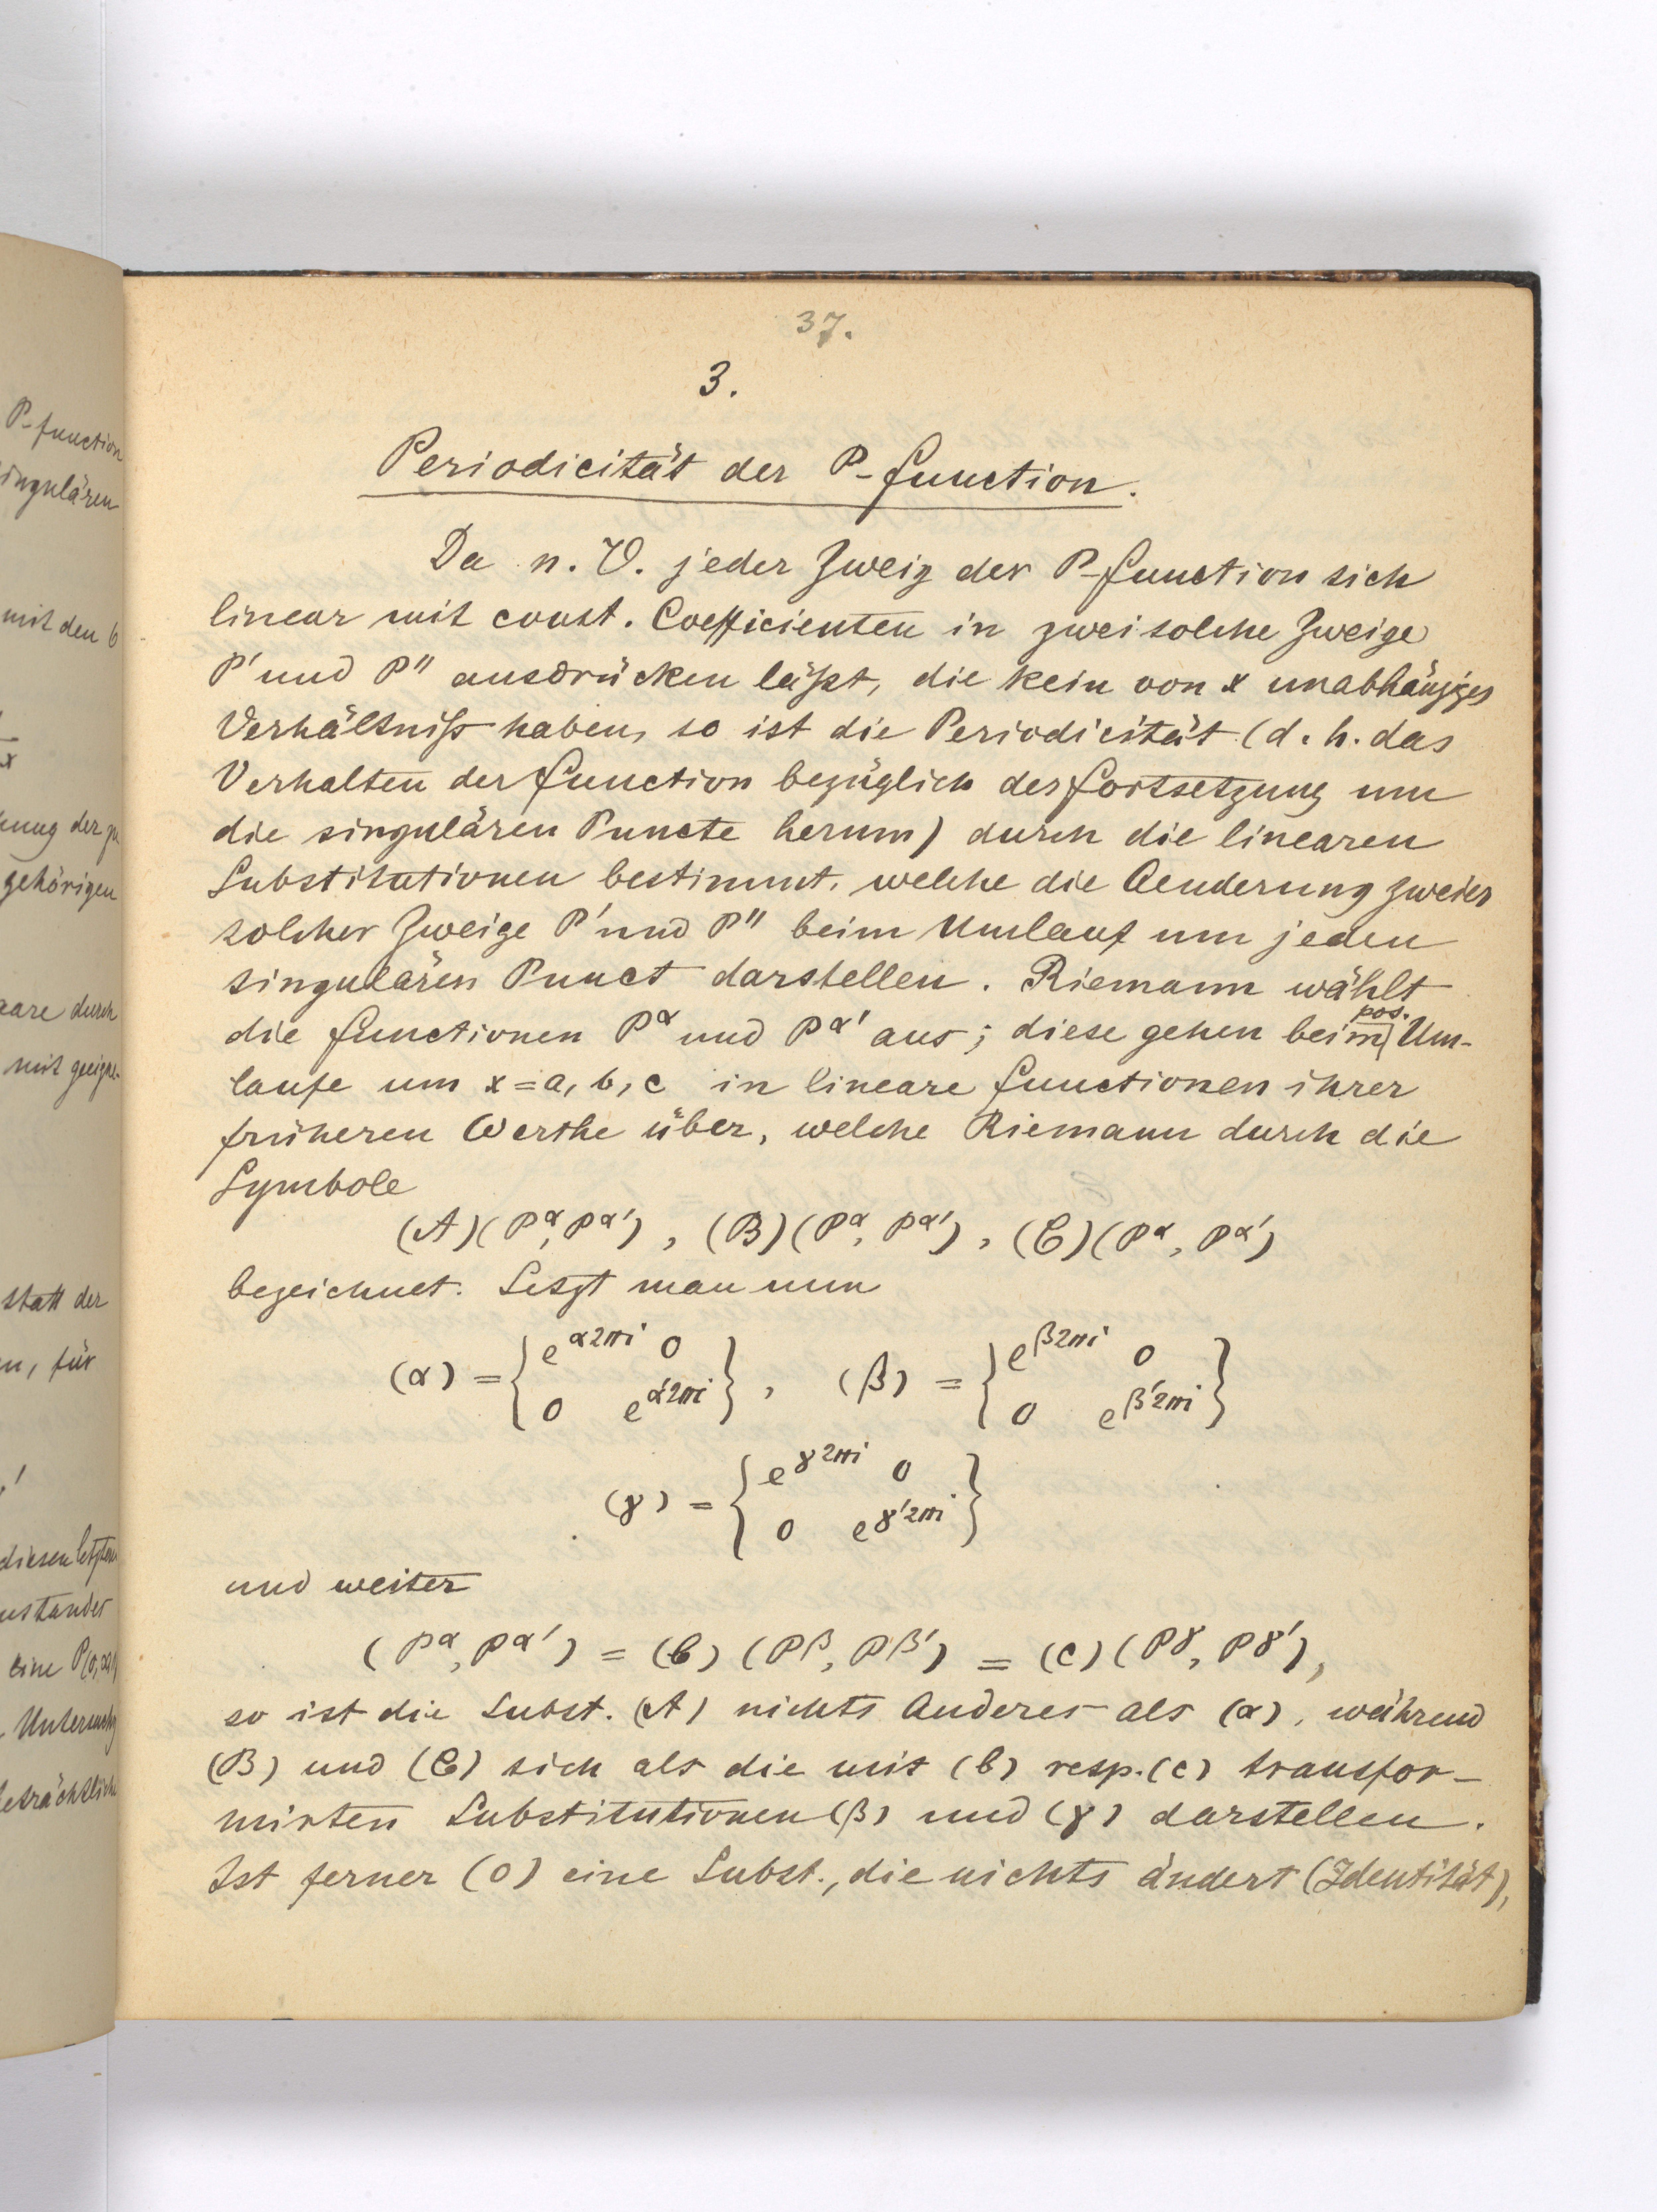 P-function
singulären
mit den 6
x
gehörigen
statt der
für
diesen
eine
37.
3.
Periodicität der P-function.
Da n. V. jeder Zweig der P-function sich
linear mit const. Coefficienten in zwei solche Zweige
P' und P'' ausdrücken läßt, die kein von x unabhängiges
Verhältniß haben, so ist die Periodicität (d. h. das
Verhalten der function bezüglich der fortsetzung um
die singulären Puncte herum) durch die linearen
Substitutionen bestimmt, welche die Aenderung zweier
solcher Zweige P' und P'' beim Umlauf um jeden
singulären Punct darstellen. Riemann wählt
die functionen P^α und P^α' aus; diese gehen beim pos. Um-
laufe um x = a, b, c in lineare functionen ihrer
früheren Werthe über, welche Riemann durch die
Symbole
(A)(P^α, P^α'), (B)(P^α, P^α'), (C)(P^α, P^α')
bezeichnet. Setzt man nun
(α) = {e^α2πi 0 / 0 e^α'2πi}, (β) = {e^β2πi 0 / 0 e^β'2πi}
(γ) = {e^γ2πi 0 / 0 e^γ'2πi}
und weiter
(P^α, P^α') = (b) (P^β, P^β') = (c) (P^γ, P^γ'),
so ist die Subst. (A) nichts Anderes als (α), während
(B) und (C) sich als die mit (b) resp. (c) transfor-
mirten Substitutionen (β) und (γ) darstellen.
Ist ferner (0) eine Subst., die nichts ändert (Identität),